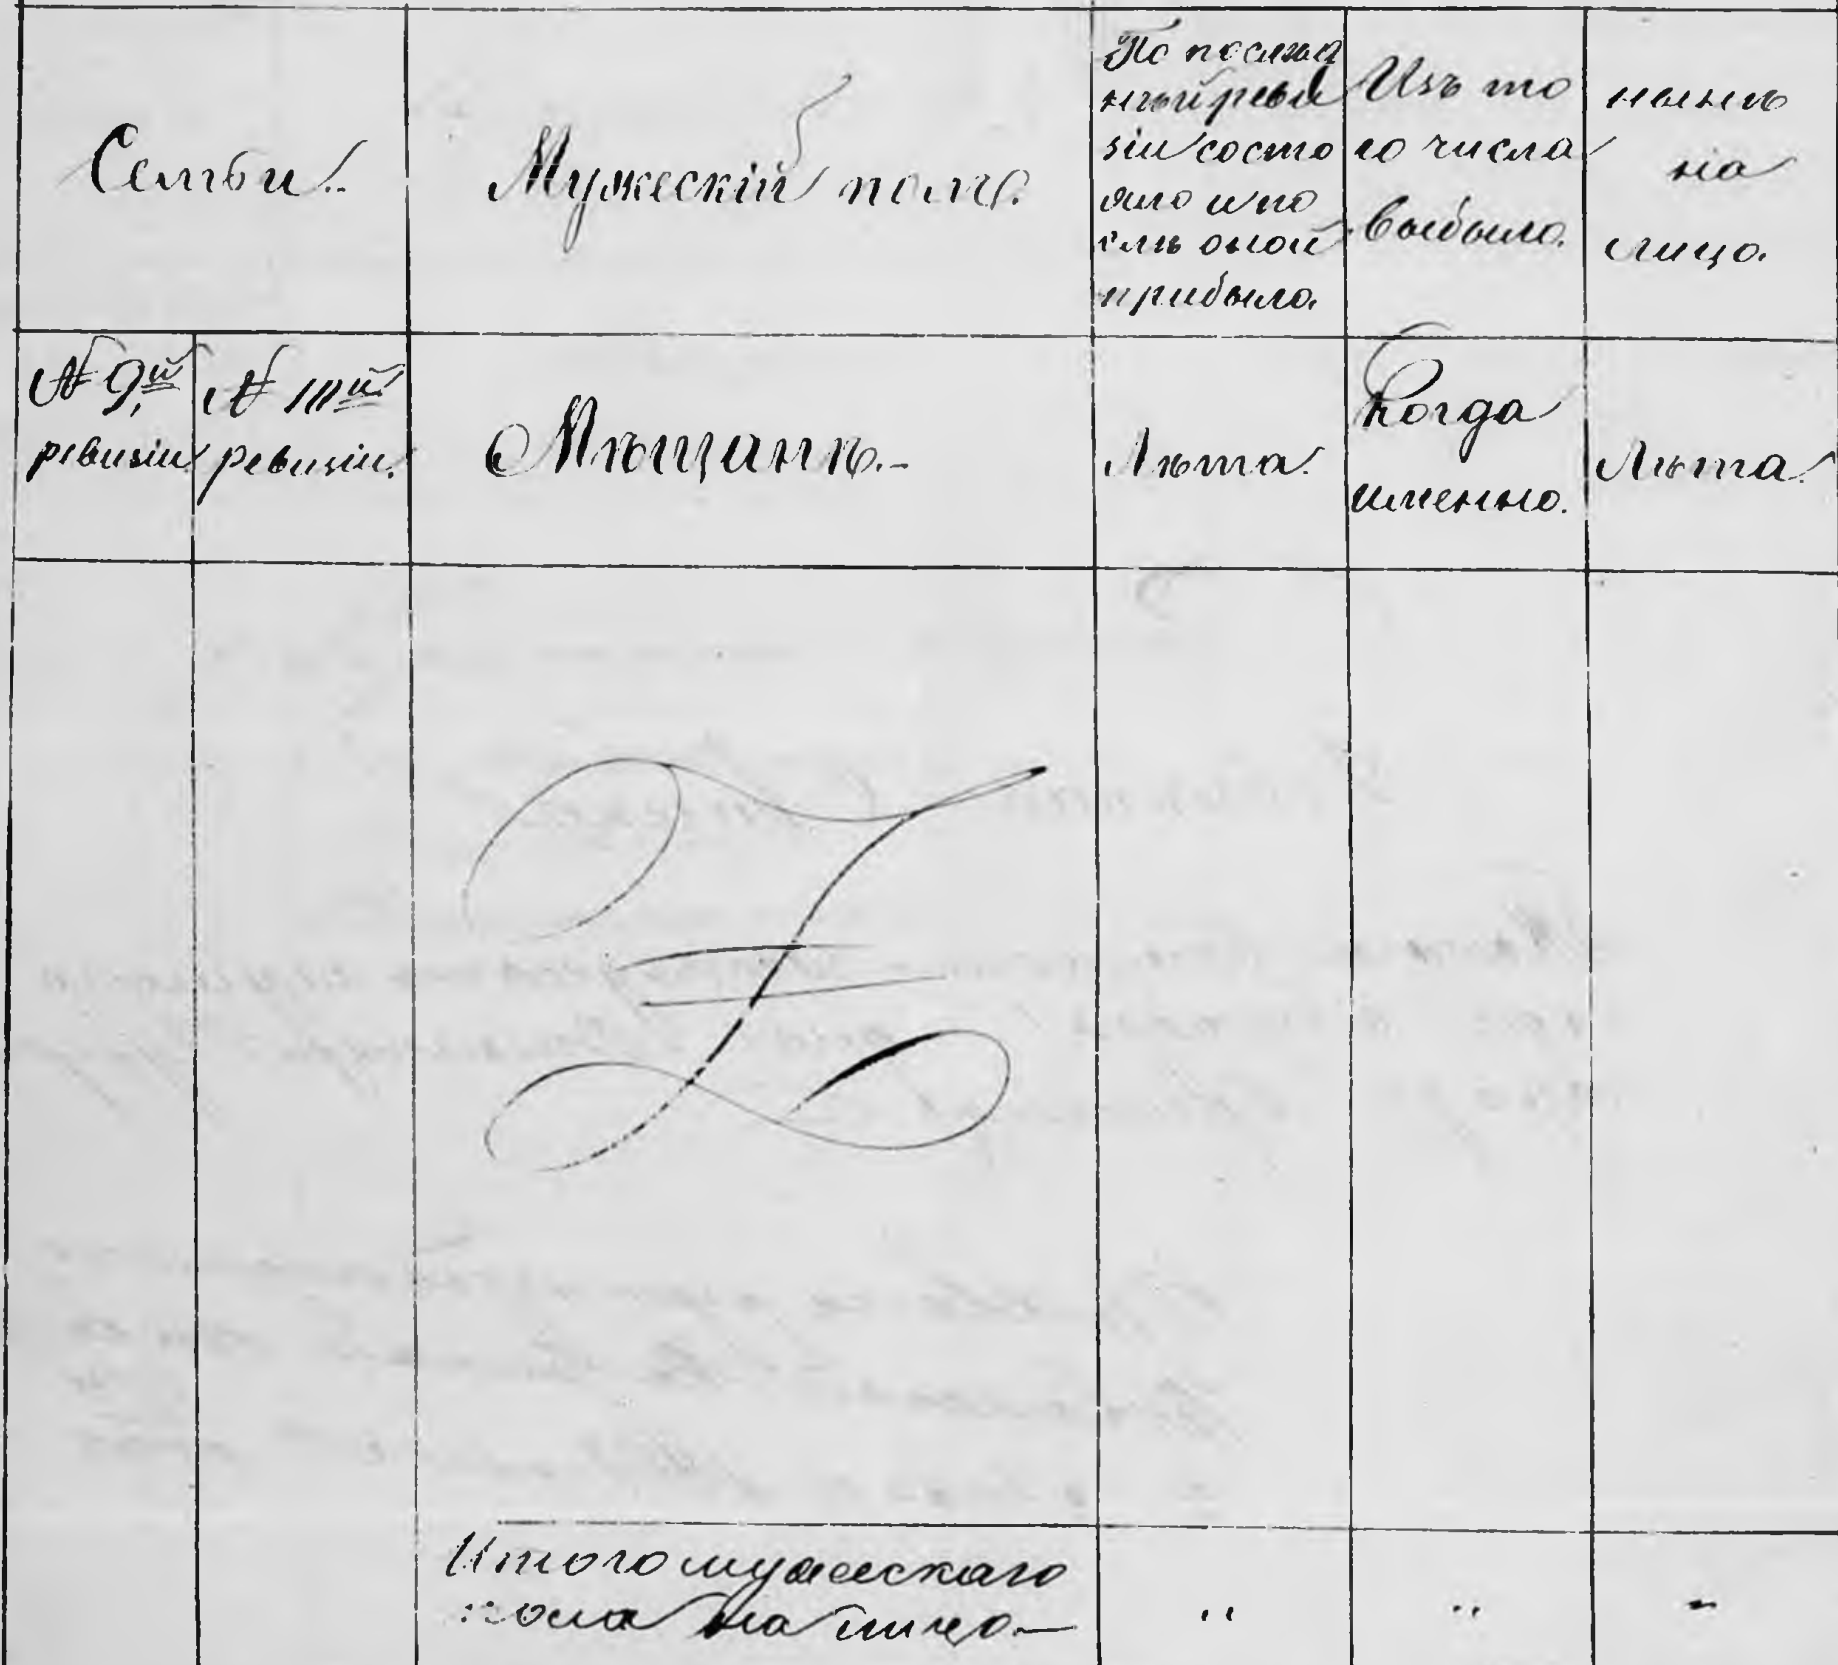 Семьи.
Мужескій полъ.
По послѣд
нѣй реви
зіи состо
яло и по
слѣ оной
прибыло.
Изъ то
го числа
выбыло.
нынѣ
на
лицо.
№ 9й
ревизіи
№ 10й
ревизіи.
Мѣщанѣ.-
Лѣта.
Когда
именно.
Лѣта.
Итого мужескаго
пола на лицо.—
" " "